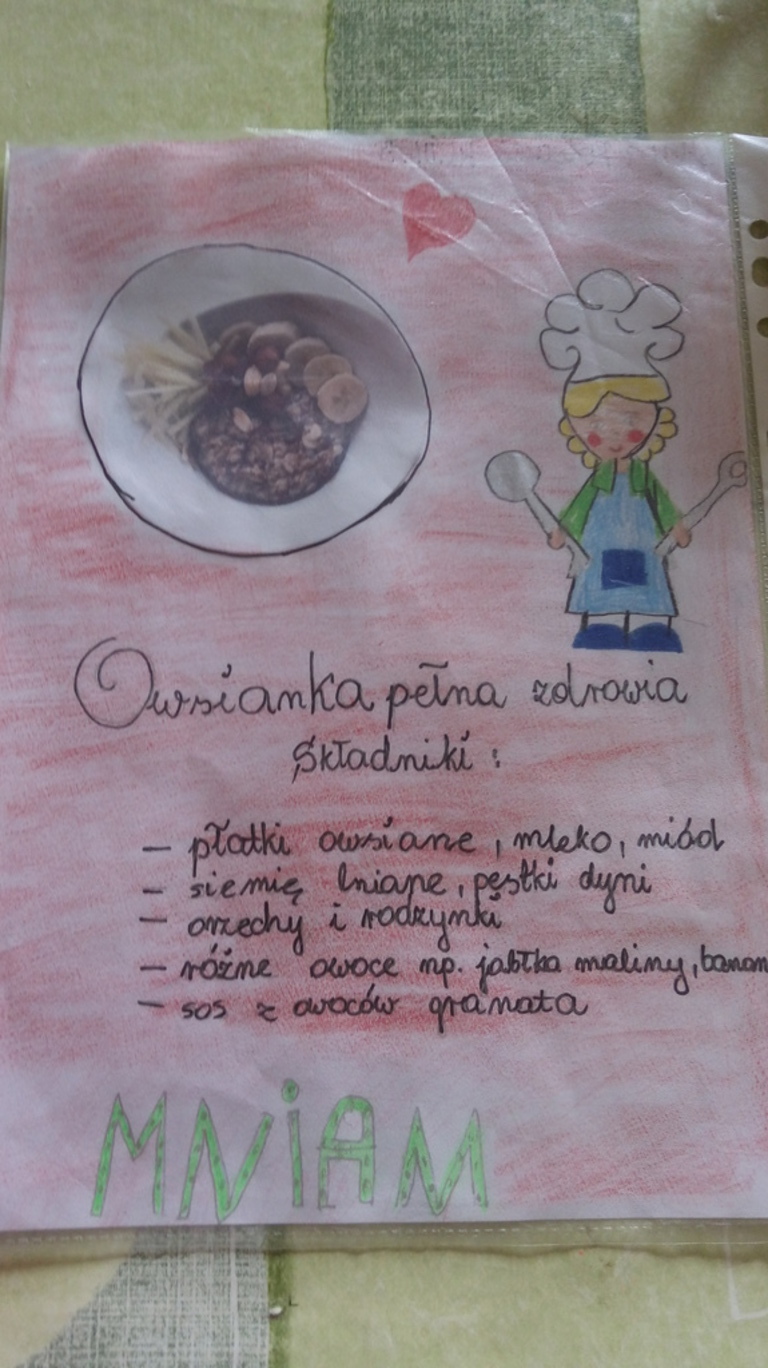 Owsianka pełna zdrowia
Składniki :
– płatki owsiane, mleko, miód
– siemię lniane, pestki dyni
– orzechy i rodzynki
– różne owoce np. jabłka maliny, banan
– sos z owoców granata
MNiAM